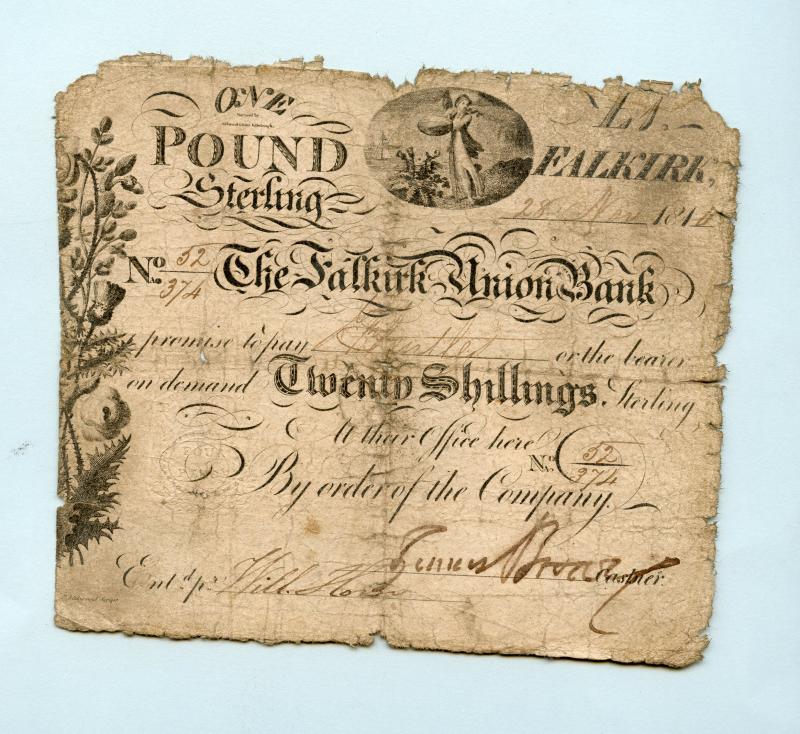 ONE
POUND
Sterling
£1.
FALKIRK,
28 Nov 1814
No. 52/374 The Falkirk Union Bank
promise to pay or the bearer
on demand Twenty Shillings Sterling
At their Office here
No. 52/374
By order of the Company.
Entd. pr. Will. Cashier